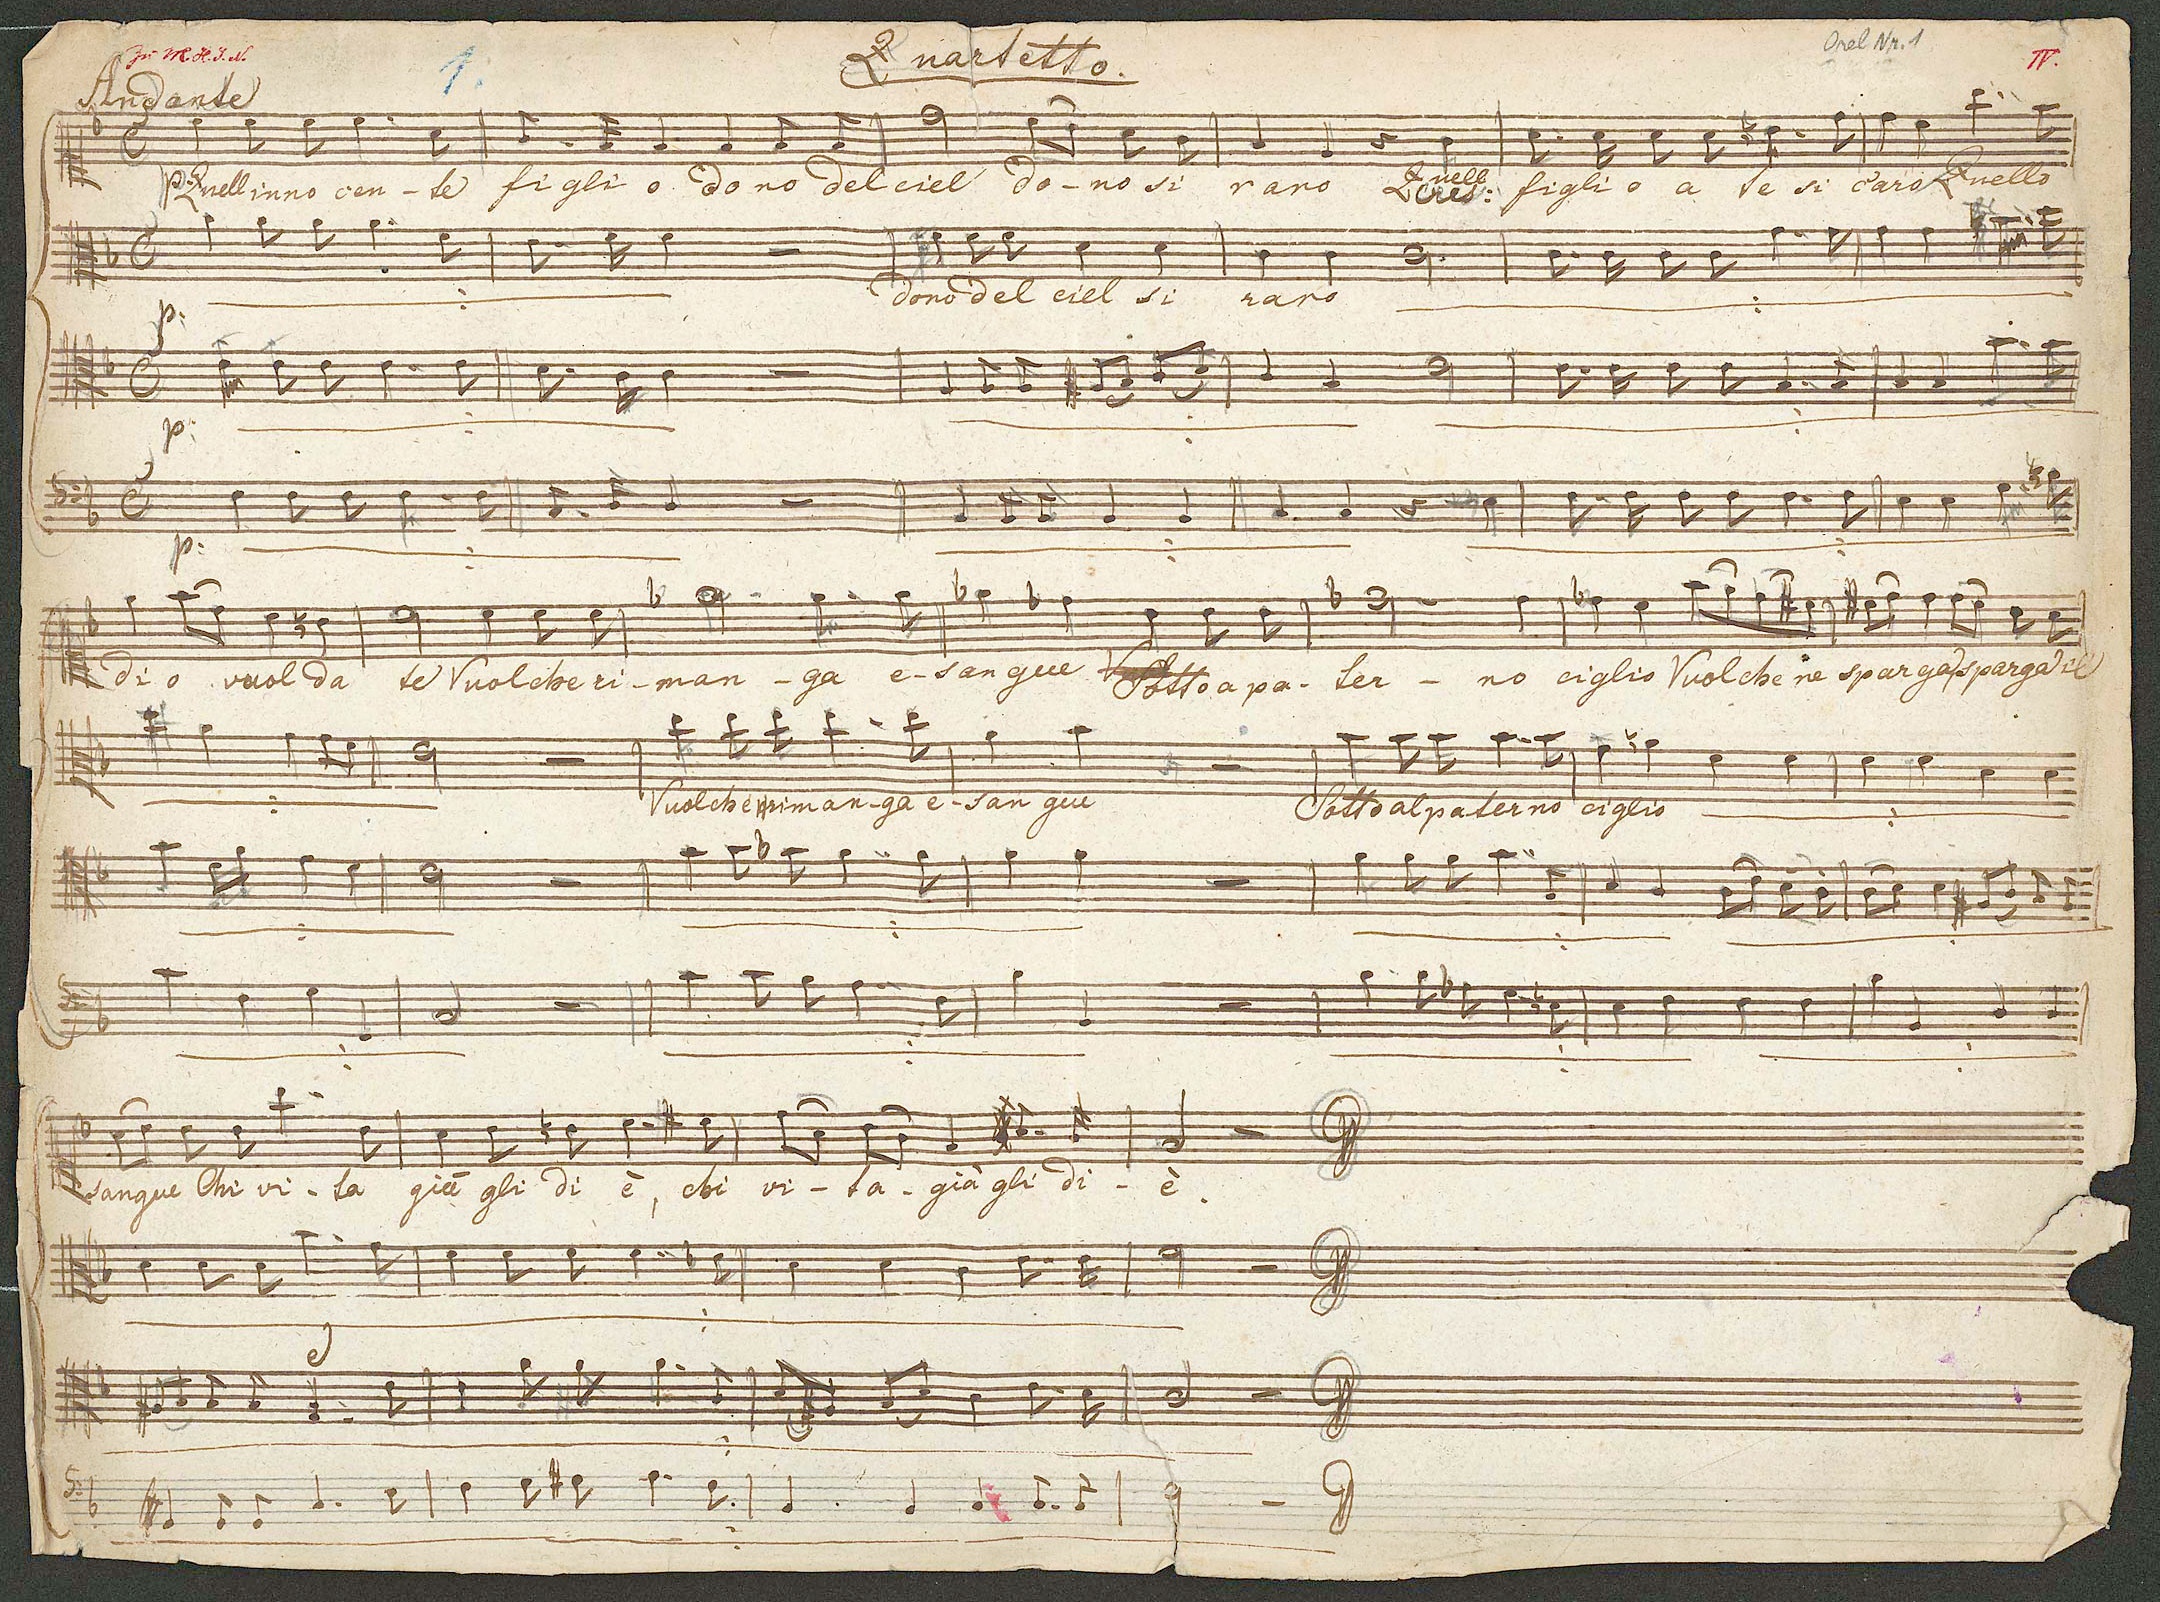 Quartetto.
Orel Nr. 1
IV.
1.
Andante
p: Quell inno cen - te figli o dono del ciel do - no si raro Quell figli o a te si caro Quello
cres:
dono del ciel si raro
p:
p:
p:
di o vuol da te Vuol che ri - man - ga e - sangue Sotto a pa - ter - no ciglio Vuol che ne sparga sparga il
Vuol che riman - ga e - san gue Sotto al paterno ciglio
sangue Chi vi - ta già gli di è, chi vi - ta - già gli di - è.